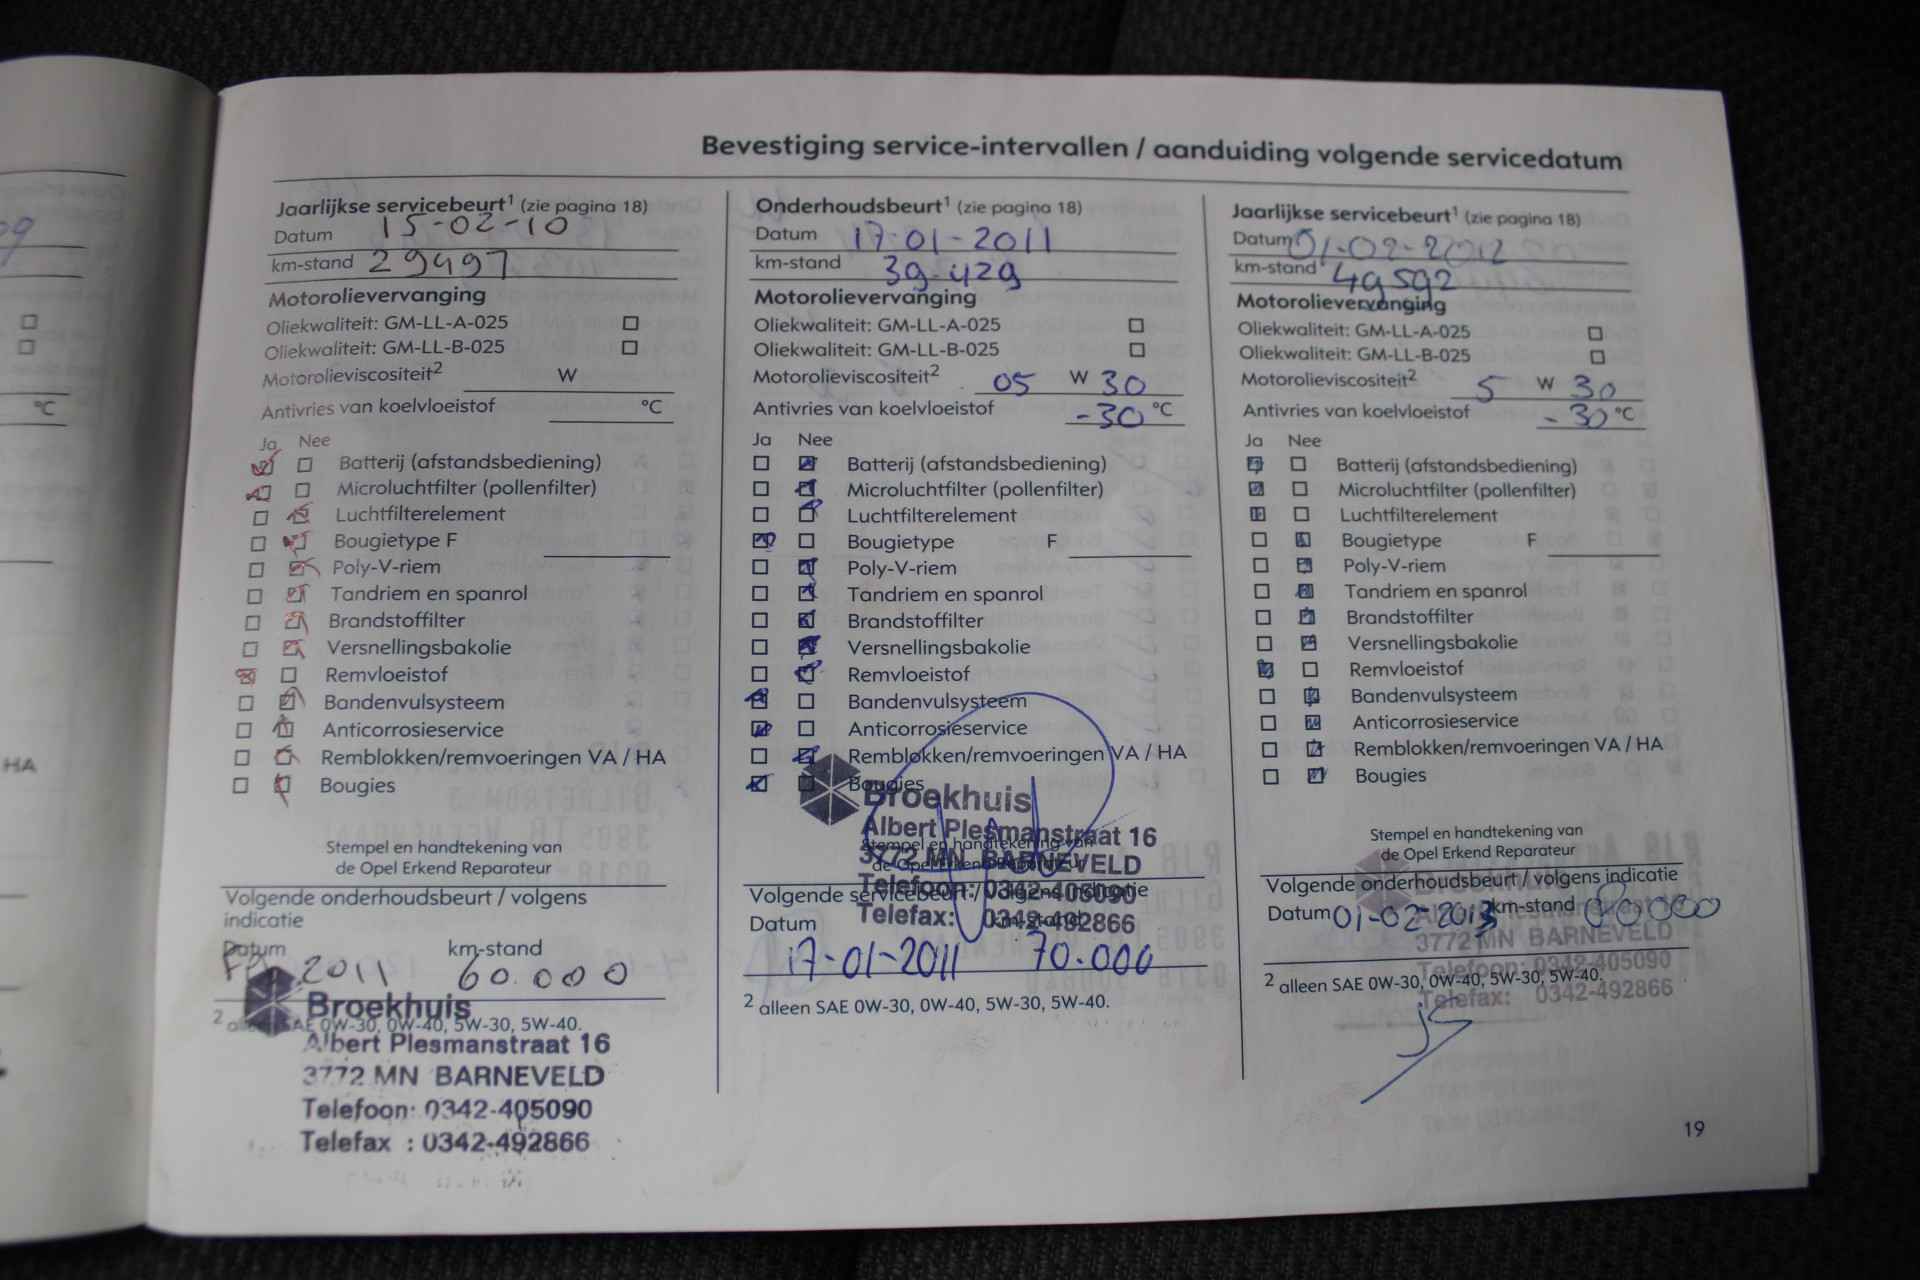 09
°C
HA
Bevestiging service-intervallen / aanduiding volgende servicedatum
Jaarlijkse servicebeurt¹ (zie pagina 18)
Datum 15-02-10
km-stand 29497
Motorolievervanging
Oliekwaliteit: GM-LL-A-025
Oliekwaliteit: GM-LL-B-025
Motorolieviscositeit² W
Antivries van koelvloeistof °C
Ja Nee
Batterij (afstandsbediening)
Microluchtfilter (pollenfilter)
Luchtfilterelement
Bougietype F
Poly-V-riem
Tandriem en spanrol
Brandstoffilter
Versnellingsbakolie
Remvloeistof
Bandenvulsysteem
Anticorrosieservice
Remblokken/remvoeringen VA / HA
Bougies
Stempel en handtekening van
de Opel Erkend Reparateur
Volgende onderhoudsbeurt / volgens
indicatie
Datum km-stand
2011 60.000
Broekhuis
² alleen SAE 0W-30, 0W-40, 5W-30, 5W-40.
Albert Plesmanstraat 16
3772 MN BARNEVELD
Telefoon: 0342-405090
Telefax : 0342-492866
Onderhoudsbeurt¹ (zie pagina 18)
Datum 17-01-2011
km-stand 39.429
Motorolievervanging
Oliekwaliteit: GM-LL-A-025
Oliekwaliteit: GM-LL-B-025
Motorolieviscositeit² 05 W 30
Antivries van koelvloeistof -30 °C
Ja Nee
Batterij (afstandsbediening)
Microluchtfilter (pollenfilter)
Luchtfilterelement
Bougietype F
Poly-V-riem
Tandriem en spanrol
Brandstoffilter
Versnellingsbakolie
Remvloeistof
Bandenvulsysteem
Anticorrosieservice
Remblokken/remvoeringen VA / HA
Bougies
Broekhuis
Albert Plesmanstraat 16
Stempel en handtekening van
3772 MN BARNEVELD
de Opel Erkend Reparateur
Telefoon: 0342-405090
Volgende servicebeurt / volgens indicatie
Telefax: 0342-492866
Datum km-stand
17-01-2011 70.000
² alleen SAE 0W-30, 0W-40, 5W-30, 5W-40.
Jaarlijkse servicebeurt¹ (zie pagina 18)
Datum 01-02-2012
km-stand 49592
Motorolievervanging
Oliekwaliteit: GM-LL-A-025
Oliekwaliteit: GM-LL-B-025
Motorolieviscositeit² 5 W 30
Antivries van koelvloeistof -30 °C
Ja Nee
Batterij (afstandsbediening)
Microluchtfilter (pollenfilter)
Luchtfilterelement
Bougietype F
Poly-V-riem
Tandriem en spanrol
Brandstoffilter
Versnellingsbakolie
Remvloeistof
Bandenvulsysteem
Anticorrosieservice
Remblokken/remvoeringen VA / HA
Bougies
Stempel en handtekening van
de Opel Erkend Reparateur
Volgende onderhoudsbeurt / volgens indicatie
Datum 01-02-2013 km-stand 80000
3772 MN BARNEVELD
Telefoon: 0342-405090
² alleen SAE 0W-30, 0W-40, 5W-30, 5W-40.
Telefax: 0342-492866
19